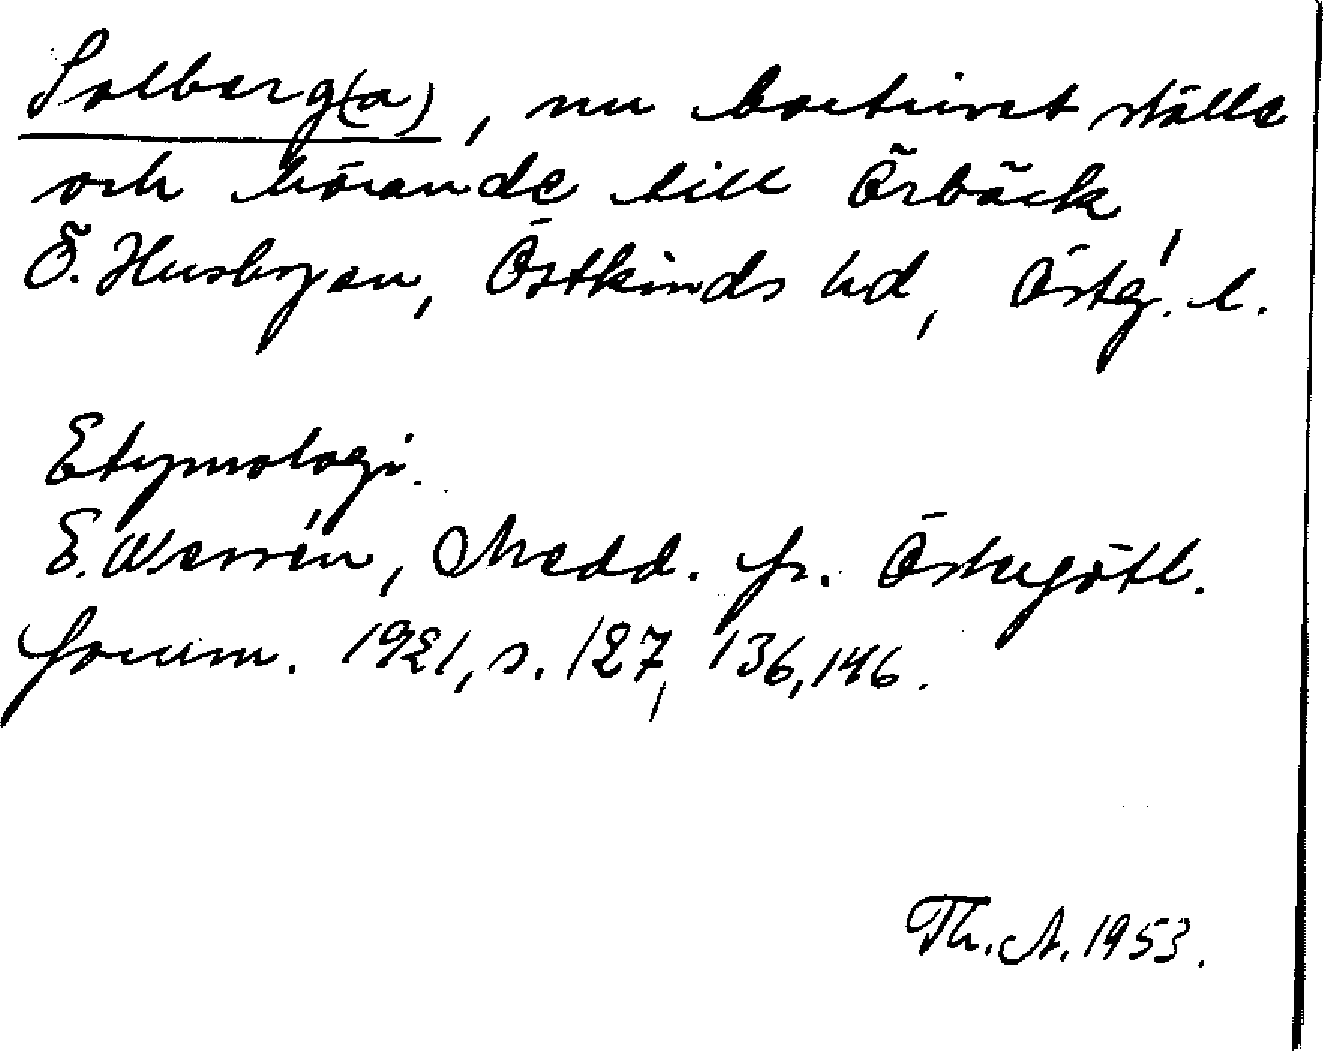 Solberg(a), nu bortrivet ställe
och hörande till Örbäck
Ö. Husbyen, Östkinds hd, Östg. l.
Etymologi.
E. Wessén, Medd. fr. Östergötl.
fornm. 1921, s. 127, 136, 146.
Th. A. 1953.